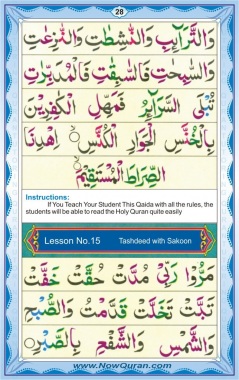 28
وَالتَّرَآئِبِ وَالنّٰشِطٰتِ وَالنّٰزِعٰتِ
وَالسّٰبِحٰتِ فَالسّٰبِقٰتِ فَالْمُدَبِّرٰتِ
تُبْلَى السَّرَآئِرُ فَمَهِّلِ الْكٰفِرِيْنَ
بِالْخُنَّسِ الْجَوَارِ الْكُنَّسِ اِهْدِنَا
الصِّرَاطَ الْمُسْتَقِيْمَ
Instructions:
If You Teach Your Student This Qaida with all the rules, the
students will be able to read the Holy Quran quite easily
Lesson No.15 Tashdeed with Sakoon
مَرُّوْا رَبِّيْ مُدَّتْ حُقَّتْ خَفَّتْ
تَبَّتْ تَخَلَّتْ قَدَّمَتْ وَالصُّبْحِ
وَالشَّمْسِ وَالشَّفْعِ بِالصَّبْرِ
www.NowQuran.com